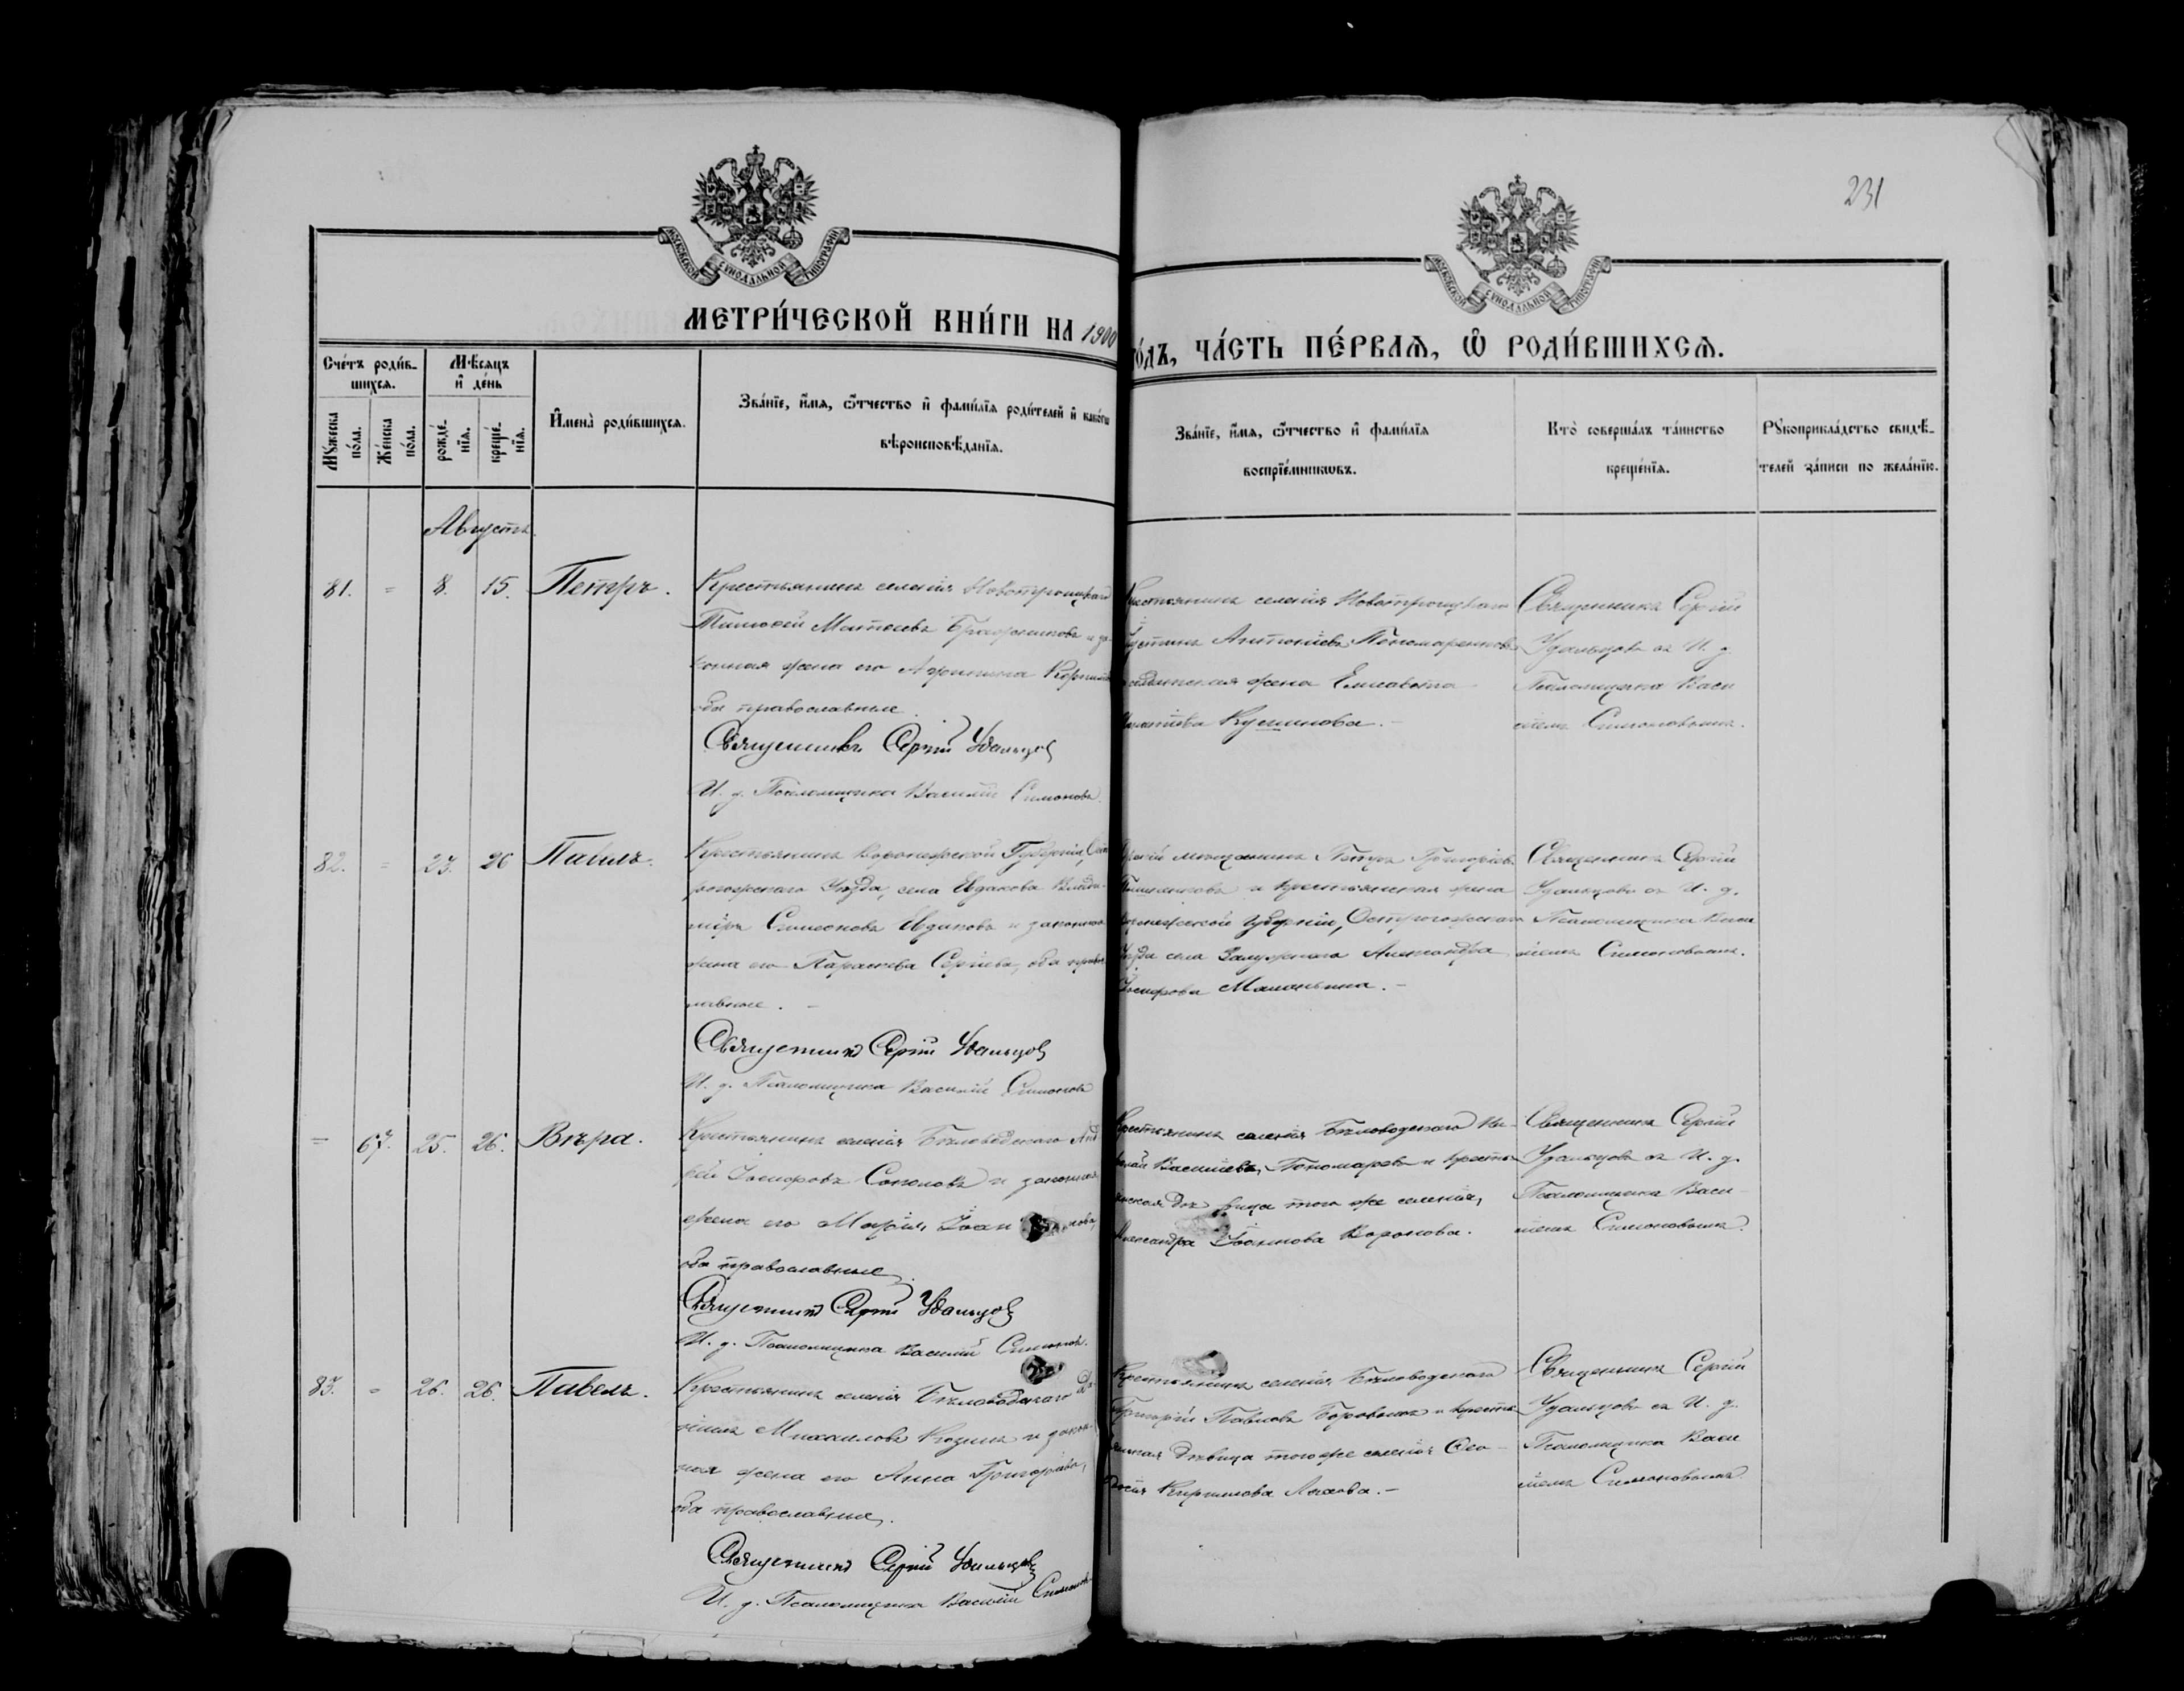 231
МОСКОВСКОЙ СѴНОДАЛЬНОЙ ТИПОГРАФІИ
МОСКОВСКОЙ СѴНОДАЛЬНОЙ ТИПОГРАФІИ
МЕТРИ́ЧЕСКОЙ КНИ́ГИ НА 1900
го́дъ, ЧА́СТЬ ПЕ́РВАѦ, Ѡ РОДИ́ВШИХСѦ.
Сче́тъ роди́в-
шихсѧ.
Мꙋ́жеска
по́ла.
Же́нска
по́ла.
Мѣ́сѧцъ
и҆ де́нь
рожде́-
нїѧ.
креще́-
нїѧ.
И҆мена̀ роди́вшихсѧ.
Зва́нїе, и҆́мѧ, ѻ҆́тчество и҆ фами́лїѧ роди́телей и҆ како́гѡ
вѣроисповѣ́данїѧ.
Зва́нїе, и҆́мѧ, ѻ҆́тчество и҆ фами́лїѧ
воспрїе́мникѡвъ.
Кто̀ соверша́лъ та́инство
креще́нїѧ.
Рꙋкоприкла́дство свидѣ́-
телей за́писи по жела́нїю.
Августъ.
81. = 8. 15. Петръ.
Крестьянинъ селенія Новотроицкаго
Тимоѳей Матѳеевъ Бражниковъ и за-
конная жена его
оба православные.
Священникъ Сергій Удальцовъ
И. д. Псаломщика Василій Симоновъ.
Крестьянинъ селенія Новотроицкаго
Антоніевъ Пономаренковъ
жена Елисавета
Священникъ Сергій
Удальцовъ съ И. д.
Псаломщика Васи
ліемъ Симоновымъ.
82. = 23. 26 Павелъ.
Крестьянинъ Воронежской Губерніи, Остро
гожскаго Уѣзда, села Евдакова Влади-
міръ Симеоновъ и законная
жена его Параскева Сергіева, оба право
славные. –
Священникъ Сергій Удальцовъ
И. д. Псаломщика Василій Симоновъ
мѣщанинъ Петръ Григоріевъ
и крестьянская жена
Воронежской губерніи, Острогожскаго
Уѣзда села Залужнаго Александра
Іосифова Мамонькина. –
Священникъ Сергій
Удальцовъ съ И. д.
Псаломщика Васи
ліемъ Симоновымъ.
= 67. 25. 26. Вѣра.
Крестьянинъ селенія Бѣловодскаго Анд
рей Іосифовъ Соколовъ и законная
жена его Марія Іоан нова,
оба православные.
Священникъ Сергій Удальцовъ
И. д. Псаломщика Василій Симоновъ.
Крестьянинъ селенія Бѣловодскаго Ни-
колай Васильевъ Пономаревъ и кресть
янская дѣвица того же селенія,
Александра Іоаннова Воронова.
Священникъ Сергій
Удальцовъ съ И. д.
Псаломщика Васи-
ліемъ Симоновымъ.
83. = 26. 26. Павелъ.
Крестьянинъ селенія Бѣловодскаго Да
ніилъ Михаиловъ Козинъ и закон-
ная жена его Анна Григоріева,
оба православные.
Священникъ Сергій Удальцовъ
И. д. Псаломщика Василій Симоновъ
Крестьянинъ селенія Бѣловодскаго
Григорій Павловъ и кресть
янская дѣвица того же селенія Ѳео-
досія Кириллова –
Священникъ Сергій
Удальцовъ съ И. д.
Псаломщика Васи
ліемъ Симоновымъ